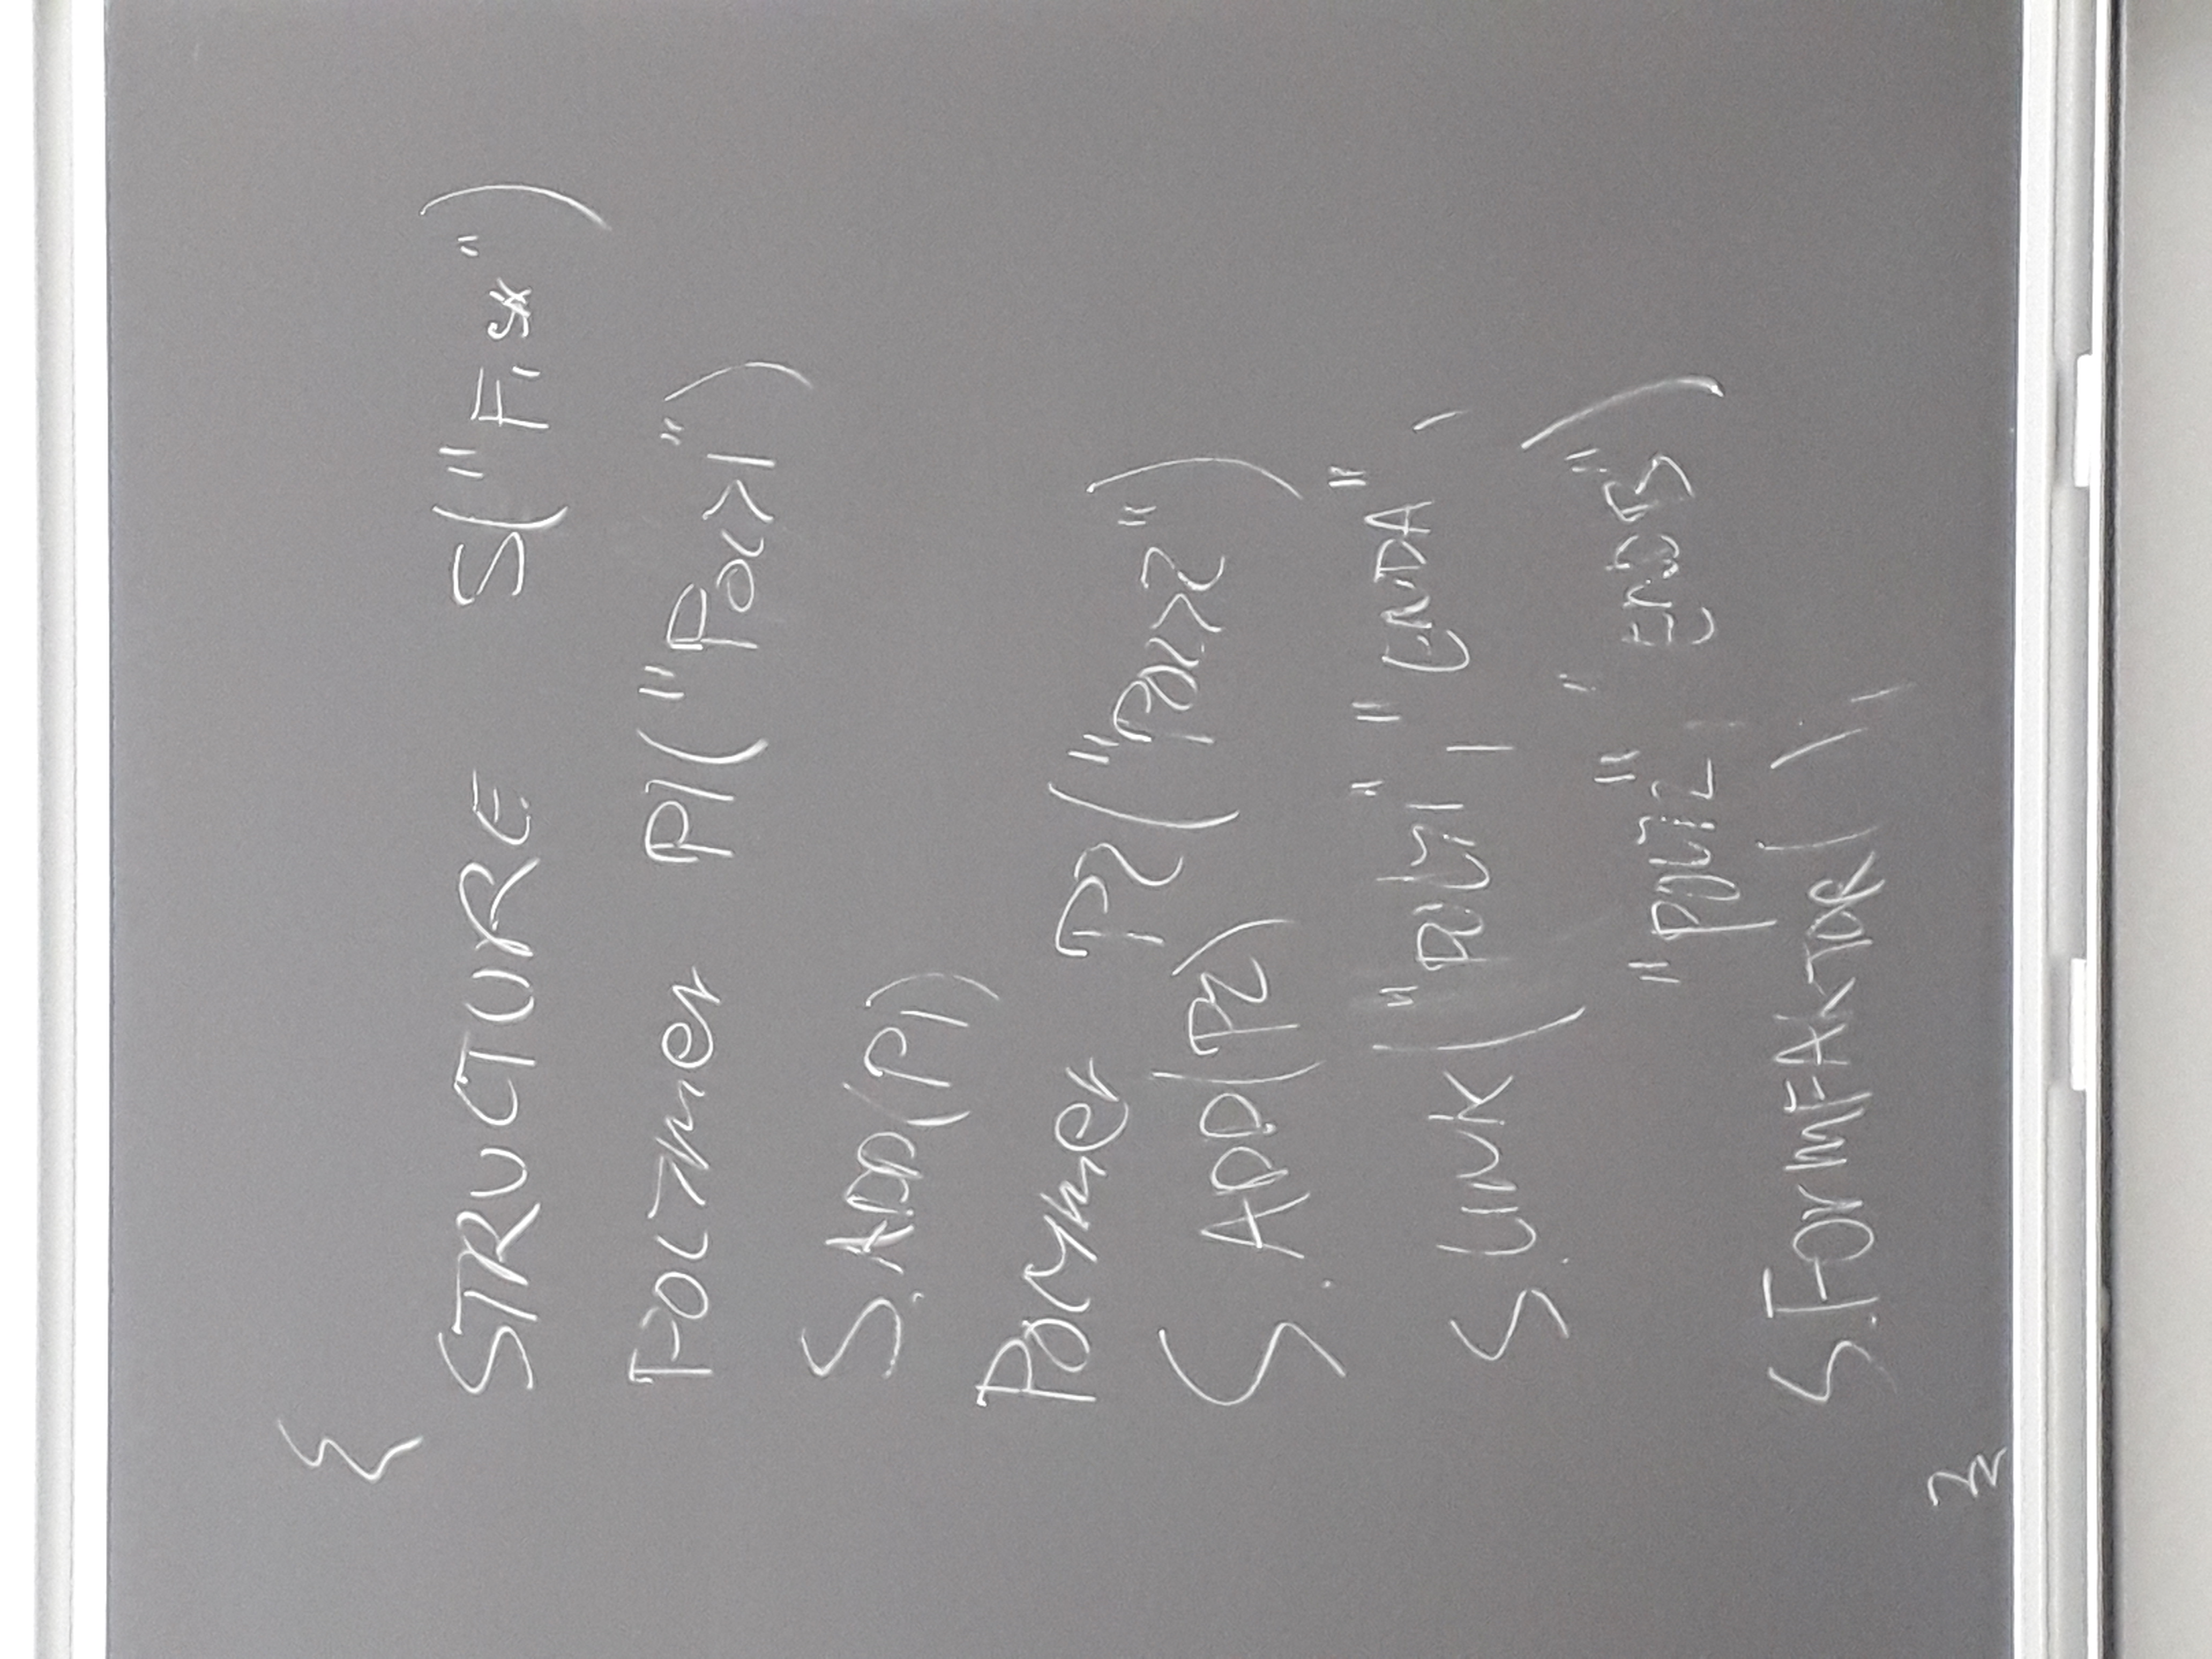 {
STRUCTURE S("Fisk")
Polymer P1("Poly1")
S.ADD(P1)
Polymer P2("Poly2")
S.ADD(P2)
S.LINK("Poly1", "ENDA",
"POLY2", "ENDB")
S.FormFAKTOR( );
}